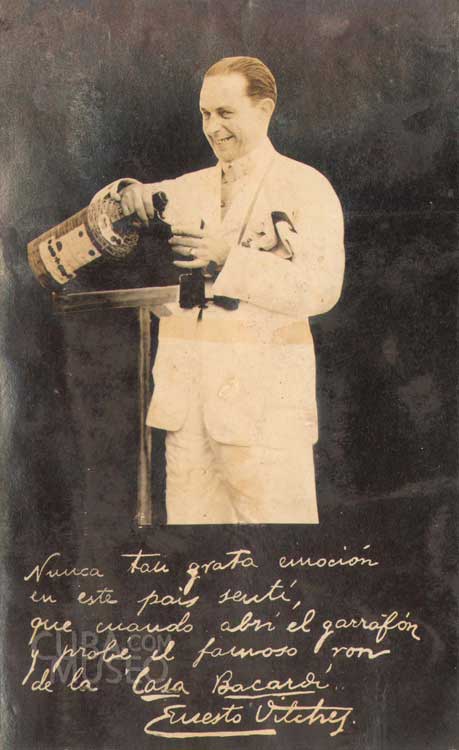 Nunca tan grata emoción
en este pais sentí,
que cuando abrí el garrafón
y probé el famoso ron
de la Casa Bacardí..
Ernesto Vilches.
CUBA.COM
MUSEO